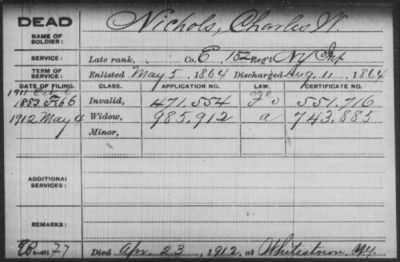 DEAD
NAME OF SOLDIER:
Nichols, Charles W.
SERVICE:
Late rank, Co. E, 152 Reg't NY Inf
TERM OF SERVICE:
Enlisted May 5, 1864 Discharged Aug. 11, 1864
DATE OF FILING. CLASS. APPLICATION NO. LAW. CERTIFICATE NO.
1911
1883 Feb 6 Invalid, 471.554 551.716
1912 May 4 Widow, 985.912 a 743.885
Minor,
ADDITIONAL SERVICES:
REMARKS:
Died Apr. 23, 1912, at Whitestown, NY.